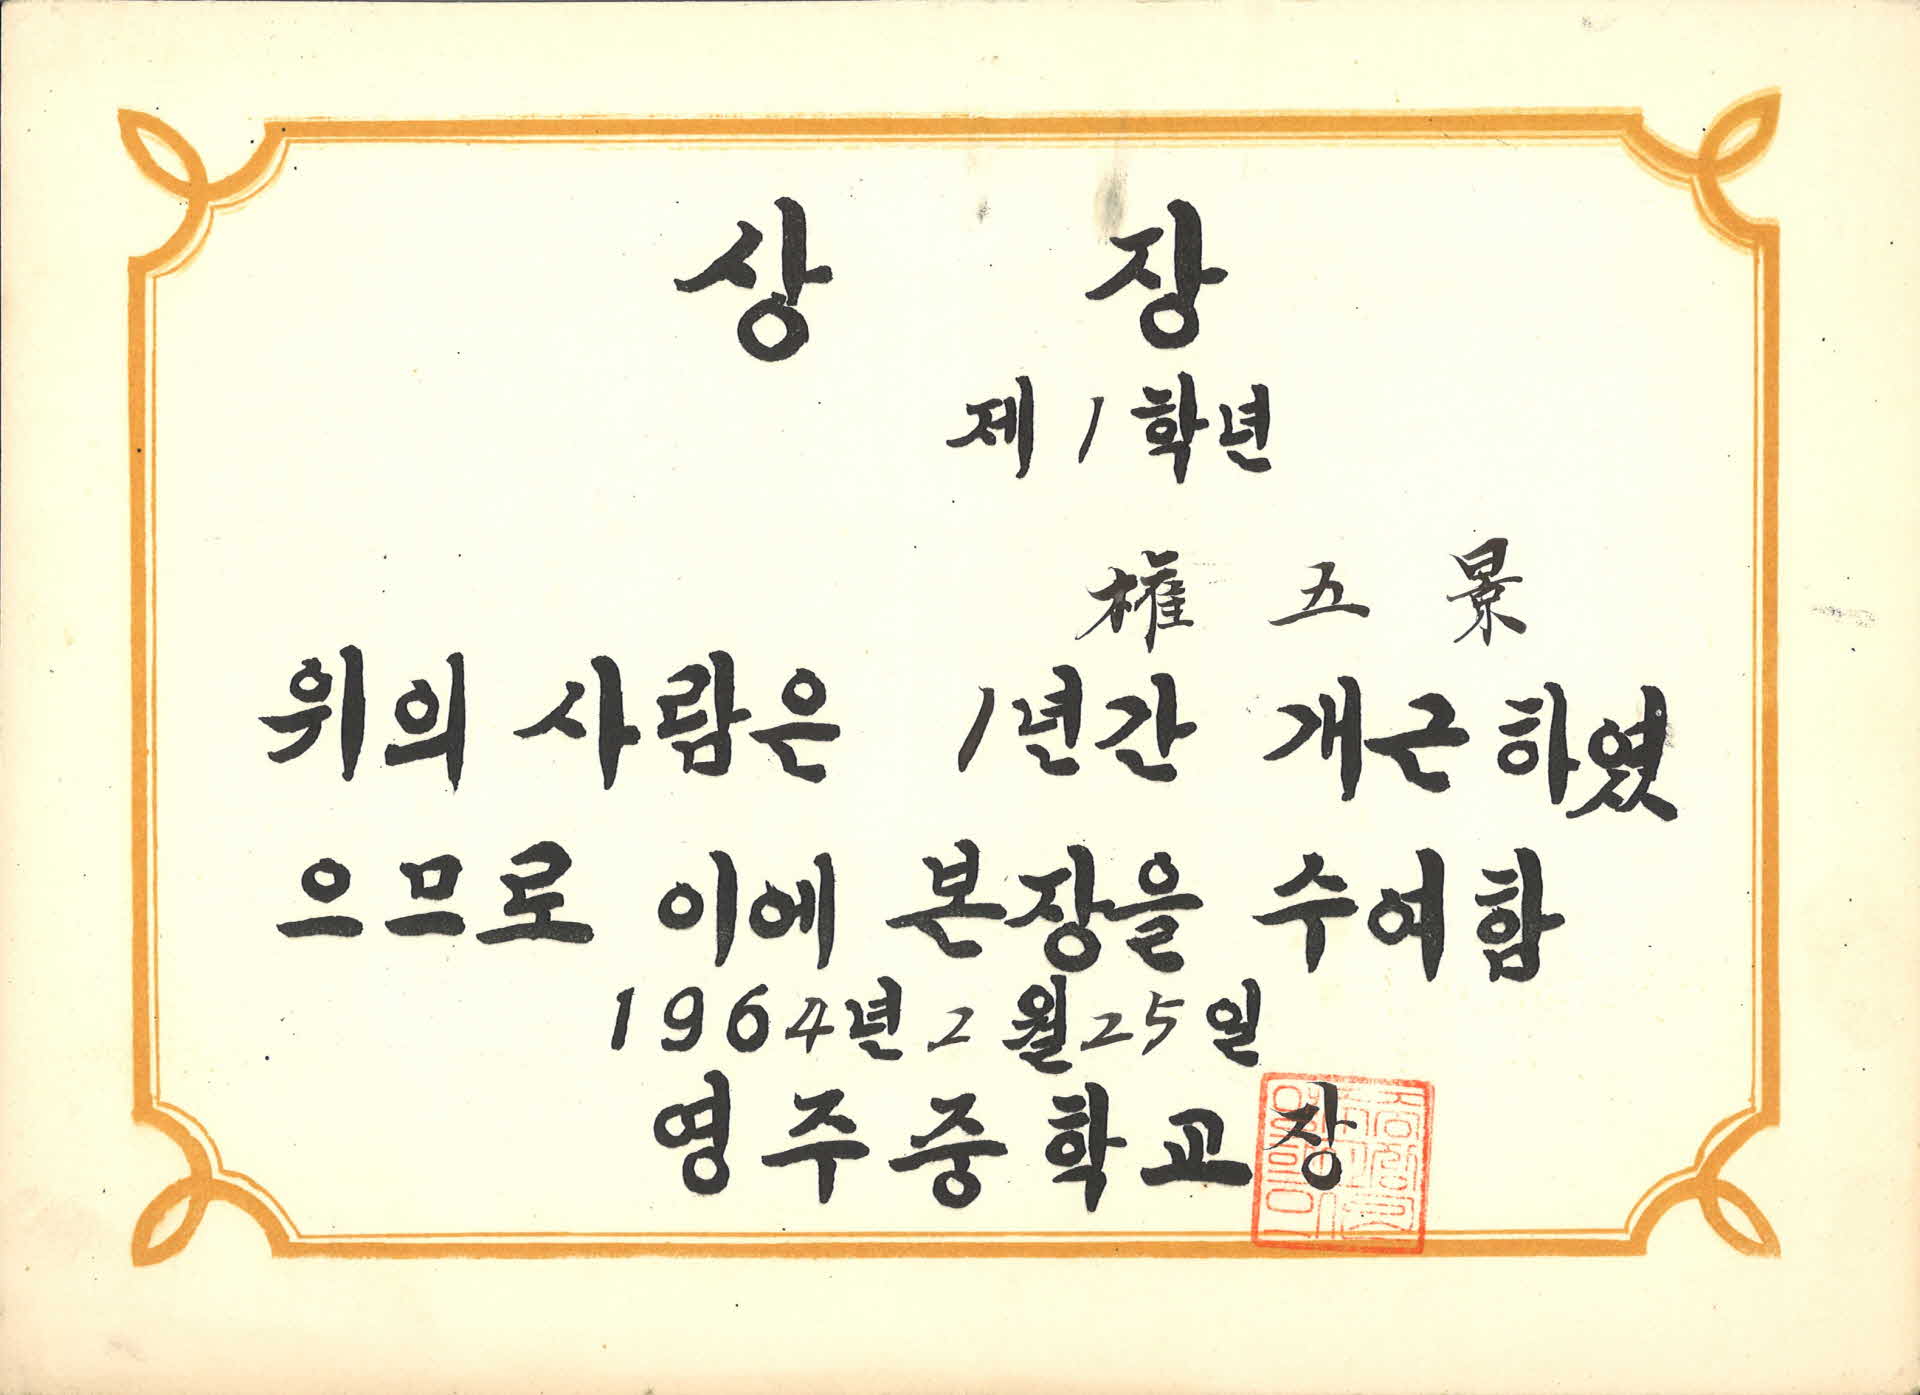 상 장
제 1 학년
權 五 景
위의 사람은 1년간 개근하였
으므로 이에 본장을 수여함
1964년 2월 25일
영주중학교장